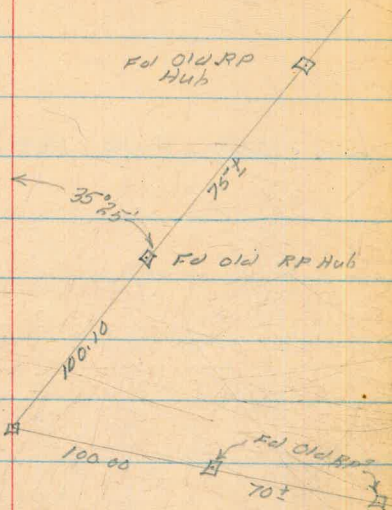 Fd Old RP
Hub
75±
35°25'
Fd Old RP Hub
100.10
Fd Old RPs
100.00
70±